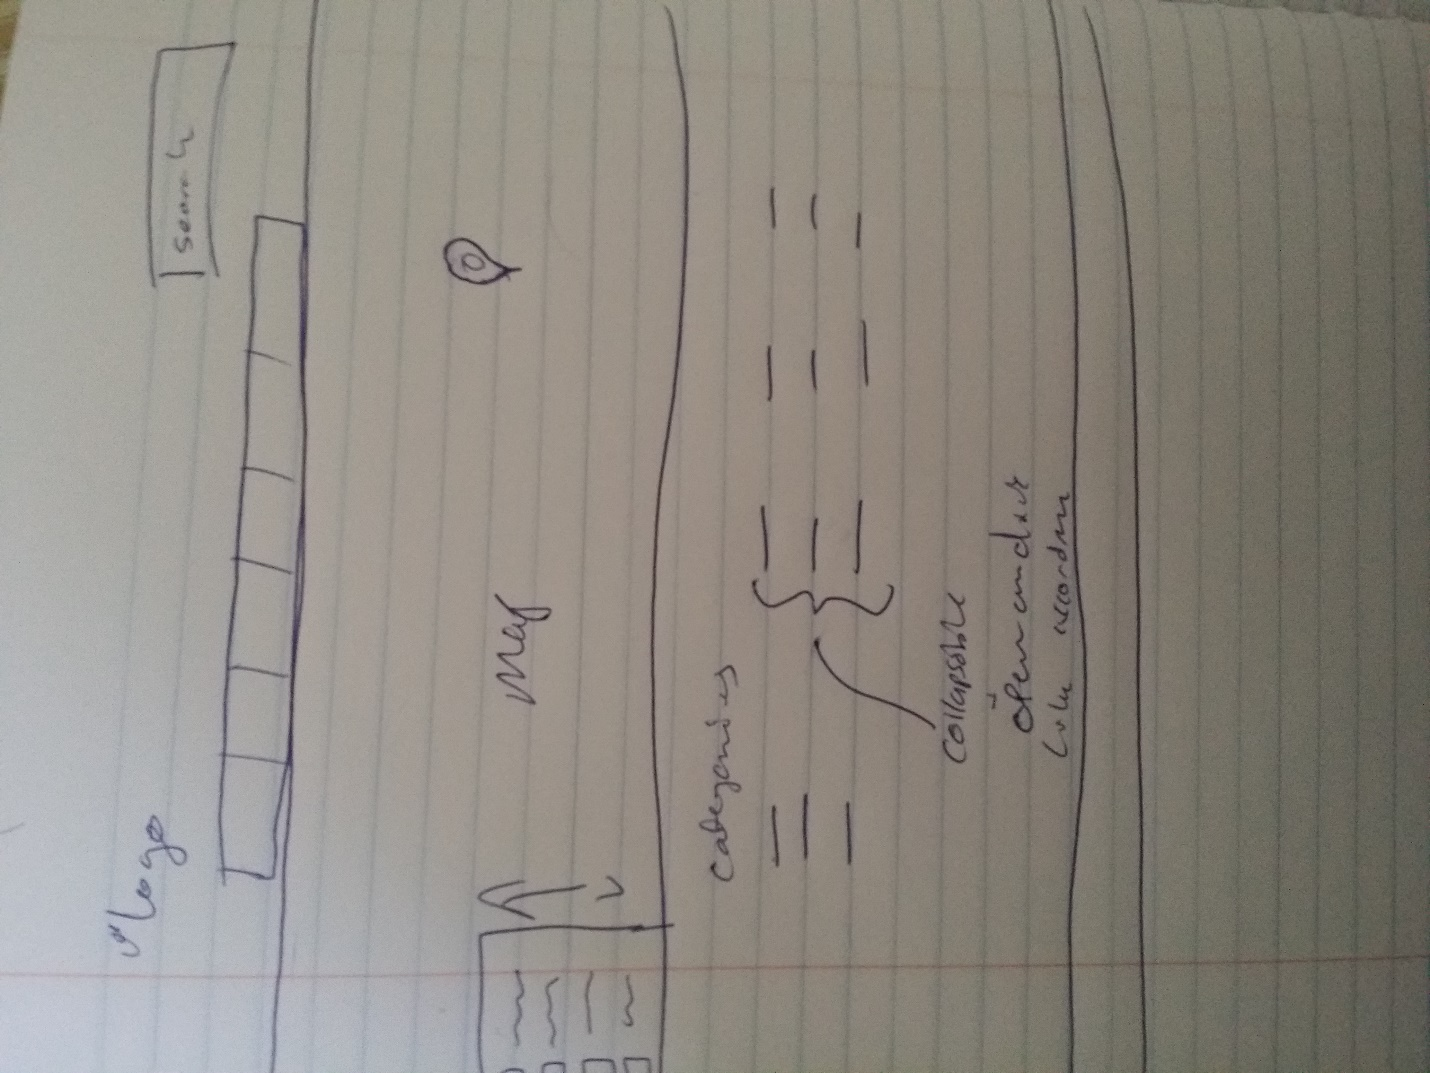 logo
search
Map
categories
collapsable
open and close
like accordian